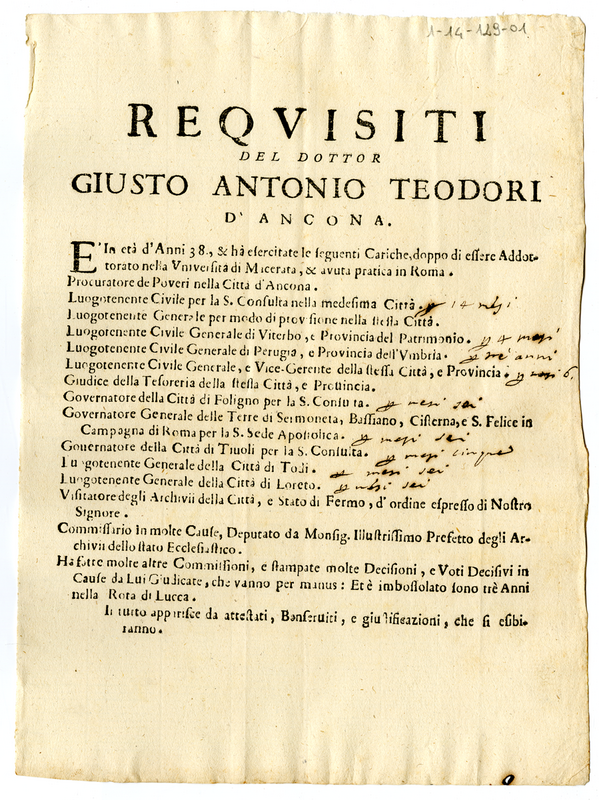 1-14-129-01
REQVISITI
DEL DOTTOR
GIUSTO ANTONIO TEODORI
D' ANCONA.
E' In età d'Anni 38., & hà esercitate le seguenti Cariche, doppo di essere Addot-
torato nella Vniversità di Micerata, & avuta pratica in Roma.
Procuratore de Poveri nella Città d'Ancona.
Luogotenente Civile per la S. Consulta nella medesima Città. p 14 mesi
Luogotenente Generale per modo di provisione nella stessa Città.
Luogotenente Civile Generale di Viterbo, e Provincia del Patrimonio. p 4 mesi
Luogotenente Civile Generale di Perugia, e Provincia dell'Vmbria. p trè anni
Luogotenente Civile Generale, e Vice-Gerente della stessa Città, e Provincia. p mesi 6.
Giudice della Tesoreria della stessa Città, e Provincia.
Governatore della Città di Foligno per la S. Consulta. p mesi sei
Governatore Generale delle Terre di Sermoneta, Bassiano, Cisterna, e S. Felice in
Campagna di Roma per la S. Sede Apostolica. p mesi sei
Governatore della Città di Tiuoli per la S. Consulta. p mesi cinque
Luogotenente Generale della Città di Todi. p mesi sei
Luogotenente Generale della Città di Loreto. p mesi sei
Visitatore degli Archivii della Città, e Stato di Fermo, d'ordine espresso di Nostro
Signore.
Commissario in molte Cause, Deputato da Monsig. Illustrissimo Prefetto degli Ar-
chivii dello stato Ecclesiastico.
Hà fatte molte altre Commissioni, e stampate molte Decisioni, e Voti Decisivi in
Cause da Lui Giudicate, che vanno per manus: Et è imbossolato sono trè Anni
nella Rota di Lucca.
Il tutto apparisce da attestati, Benserviti, e giustificazioni, che si esibi-
ranno.